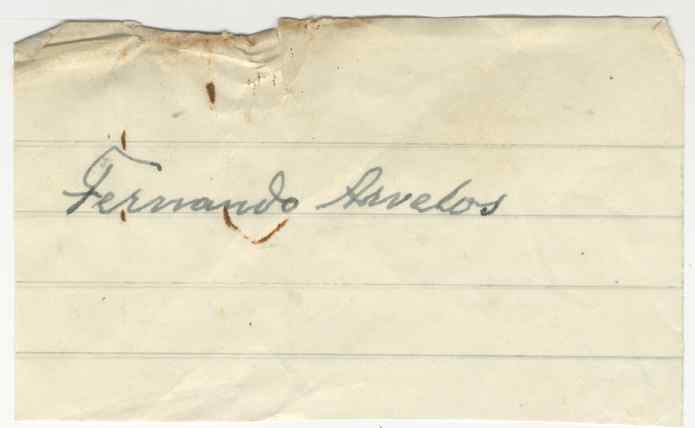 Fernando Arvelos